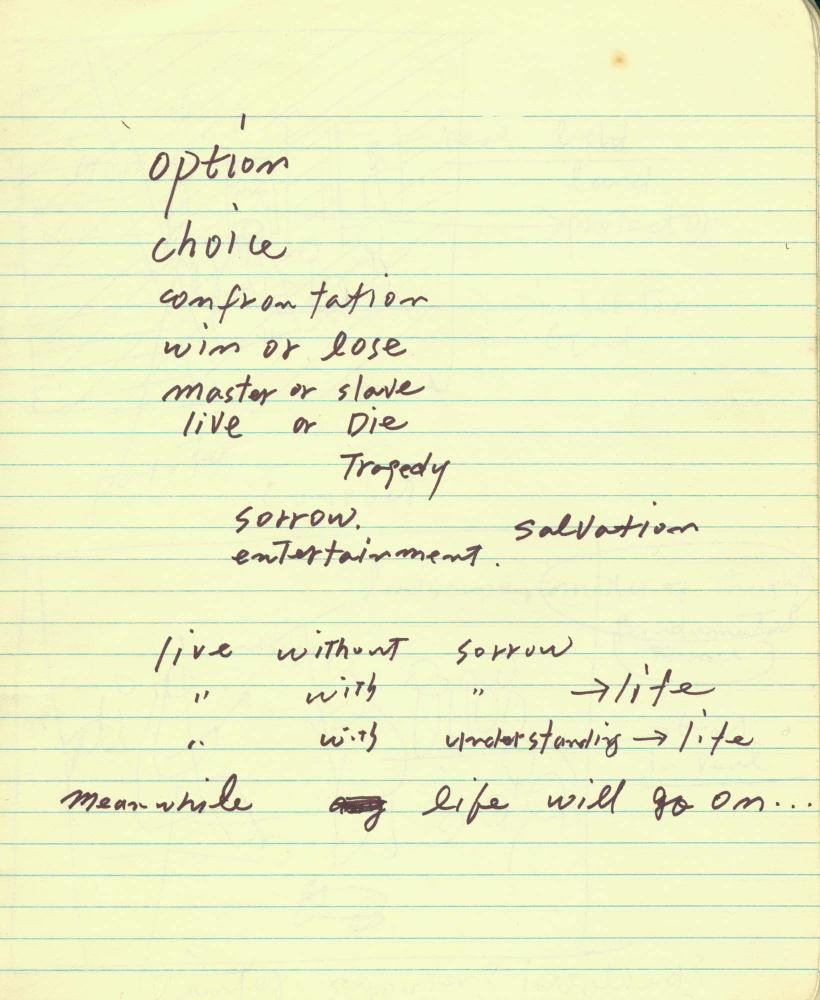 option
choice
confrontation
win or lose
master or slave
live or Die
Tragedy
sorrow.
salvation
entertainment.
live without sorrow
" with " → life
" with understanding → life
meanwhile life will go on...